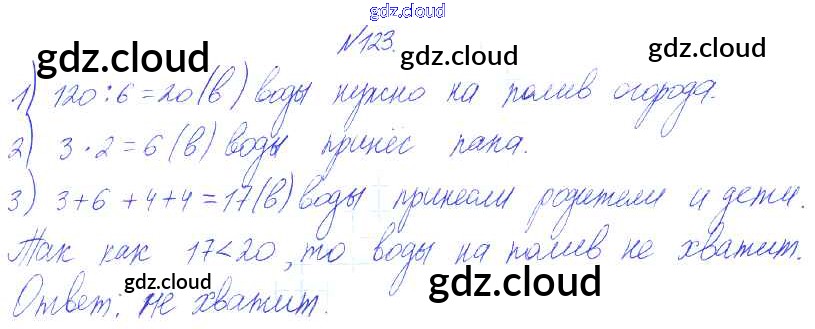 gdz.cloud
№123.
gdz.cloud gdz.cloud
1) 120:6=20(в) воды нужно на полив огорода.
gdz.cloud
2) 3·2=6(в) воды принёс папа.
gdz.cloud
3) 3+6+4+4=17(в) воды принесли родители и дети.
gdz.cloud
Так как 17<20, то воды на полив не хватит.
gdz.cloud gdz.cloud
Ответ: не хватит.